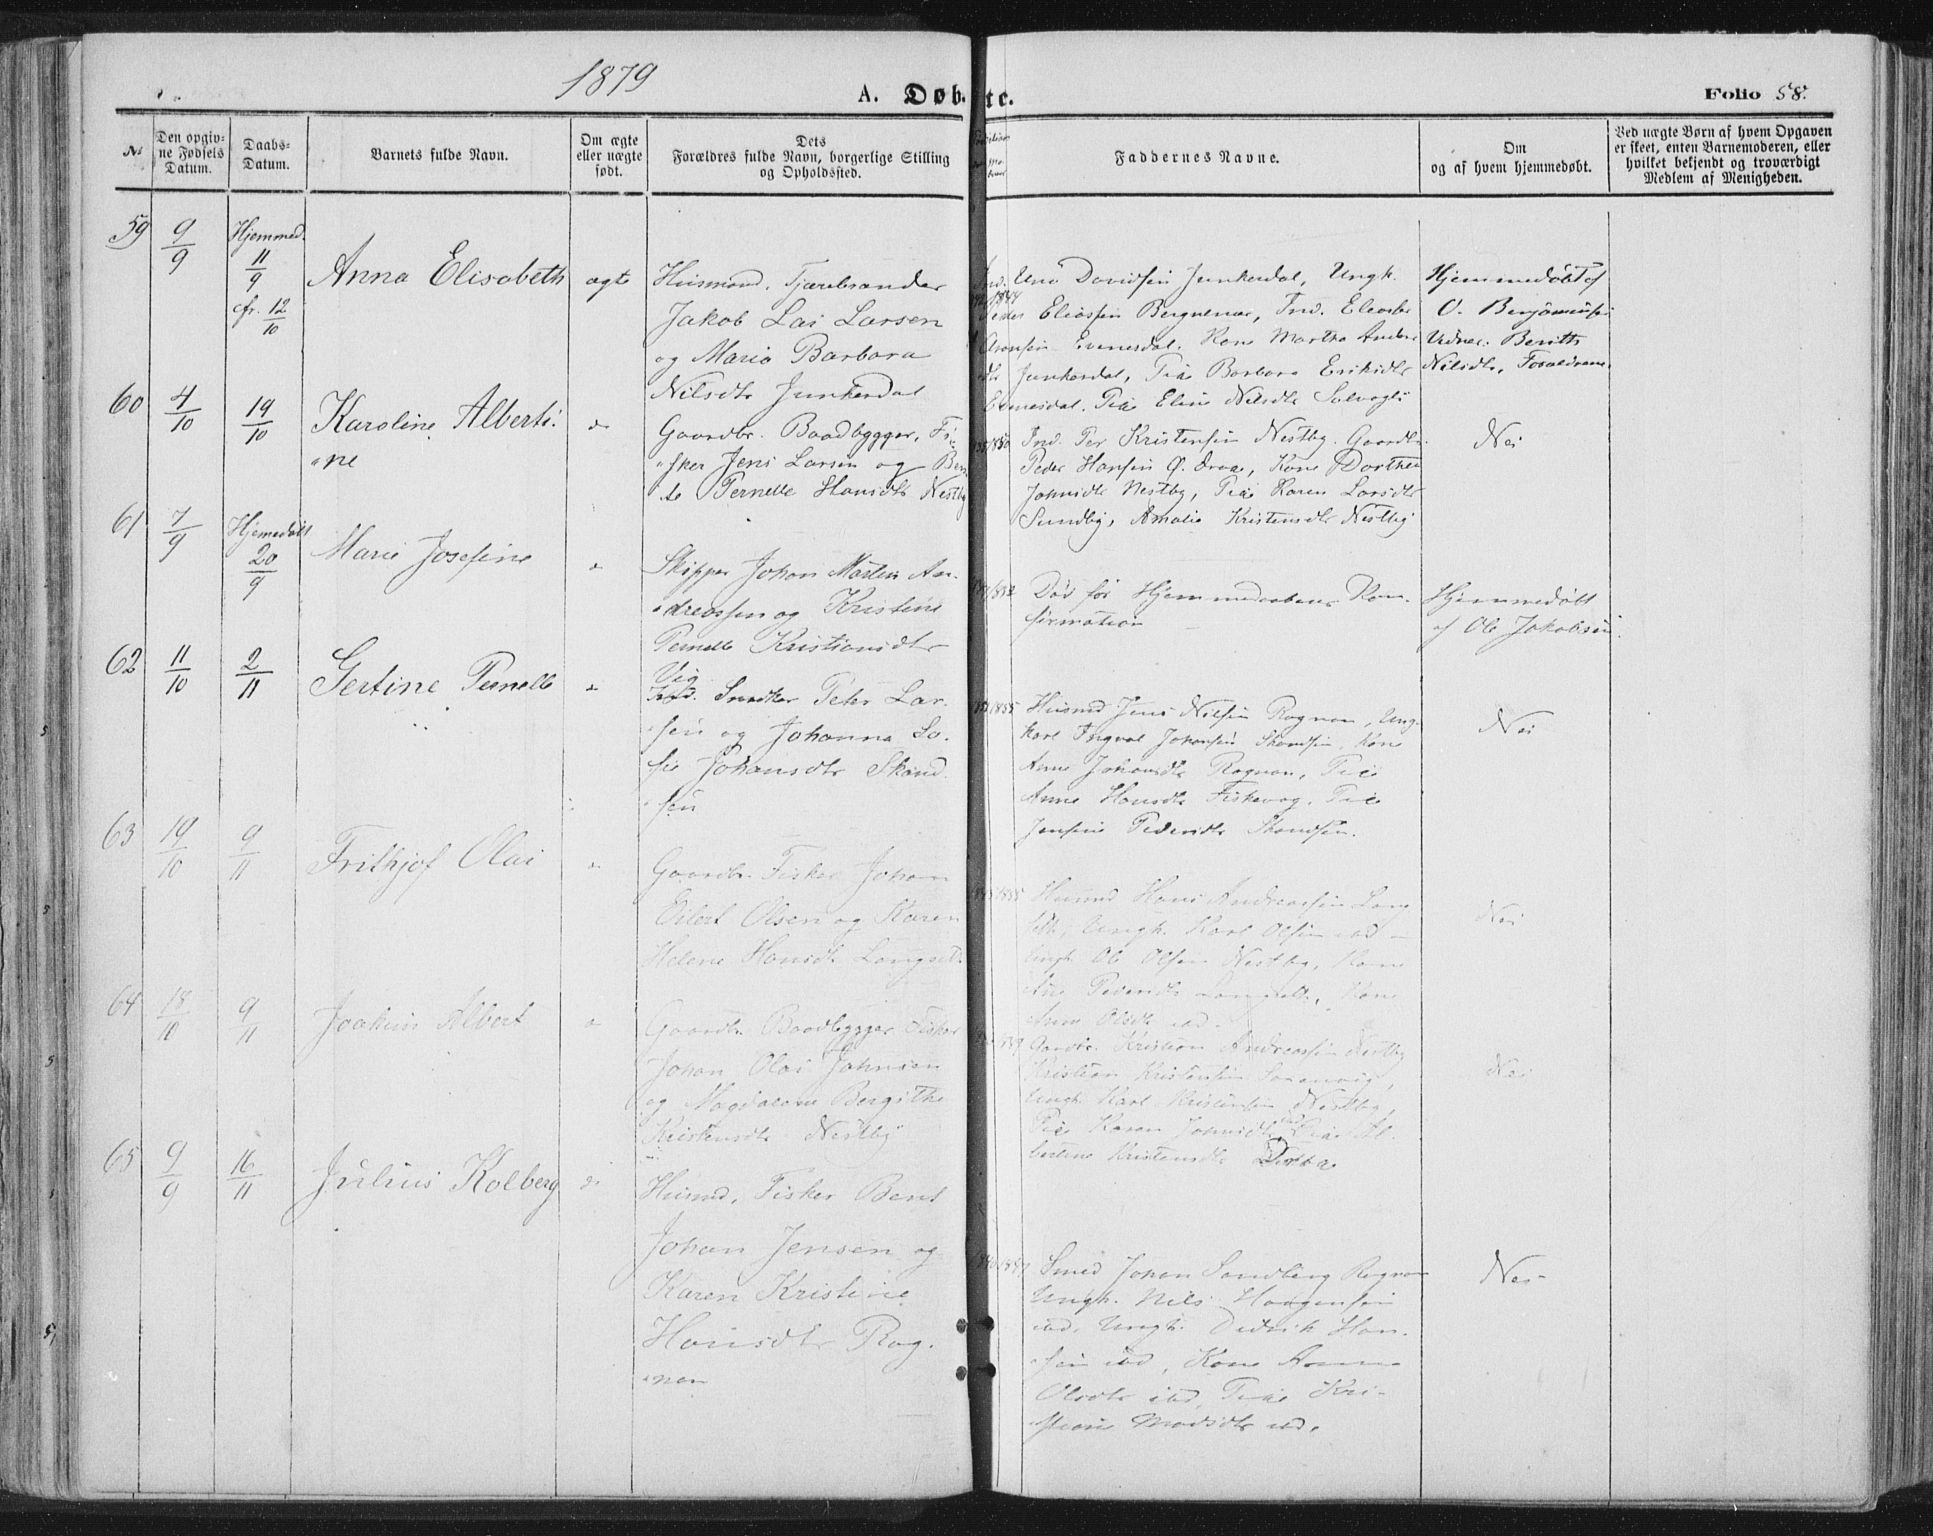 1879
A. Døbte.
Folio 58.
№
Den opgivne Fødsels Datum.
Daabs-Datum.
Barnets fulde Navn.
Om ægte eller uægte født.
Dets Forældres fulde Navn, borgerlige Stilling og Opholdssted.
Faddernes Navne.
Om og af hvem hjemmedøbt.
Ved uægte Børn af hvem Opgaven er skeet, enten Barnemoderen, eller hvilket bekjendt og troværdigt Medlem af Menigheden.
59
9/9
Hjemmed.
11/9
cfr. 12/10
Anna Elisabeth
ægte
Husmand, Tjærebrænder
Jakob Lai Larsen
og Maria Barbara
Nilsdtr Junkerdal
Davidsen Junkerdal, Ungk.
Eliassen Bergulnes, Ind.
Aronsen Evenesdal. Kone Martha Anders
dtr Junkerdal, Pige Barbara Eriksdtr
Evenesdal. Pige Nilsdtr
Hjemmedøbt af
O. Benjaminsen
Berith
Nilsdtr, Forældrene
60
4/10
19/10
Karoline Alberti-
ne
Gaardbr. Baadbygger, Fi
sker Jens Larsen og Ben
te Pernelle Hansdtr Nestby
Ind. Per Kristensen Nestby. Gaardbr.
Peder Hansen Ø. Kone Dorthea
Johnsdtr Nestby, Pige Karen Larsdtr
Sundby, Amalie Kristensdtr Nestby
Nei
61
7/9
Hjemmedøbt
20/9
Marie Josefine
Skipper Johan Martin An-
dreassen og Kristine
Pernelle Kristiansdtr
Vig
Død før Hjemmedaabens Kon
firmation
Hjemmedøbt
af Ole Jakobsen.
62
11/10
2/11
Gertine Pernelle
Ind. Snedker Peter Lar-
sen og Johanna So-
fie Johansdtr Skand
sen
1855
Husmd Jens Nilsen Rognan, Ung-
karl Ingval Johansen Skandsen, Kone
Anne Johansdtr Rognan, Pige
Anne Hansdtr Fiskevog, Pige
Jensine Pedersdtr Skandsen.
Nei
63
19/10
9/11
Frithjof Olai
Gaardbr. Fisker Johan
Eilert Olsen og Karen
Helene Hansdtr Langset
Husmd Hans Andreassen Lang
set, Ungk. Karl Olsen ibd
Ungk. Ole Olsen Nestby, Kone
Pedersdtr Kone
Anne Olsdtr ibd.
Nei
64
18/10
9/11
Joakim Albert
Gaardbr. Baadbygger Fisker
Johan Olai Johnsen
og Magdalena Bergithe
Kristensdtr Nestby
Gaardbr. Kristian Andreassen Nestby
Kristian Kristensen
Ungk. Karl Kristensen Nestby,
Pige Karen Johnsdtr ibd Pige Al-
bertine Kristensdtr
Nei
65
9/9
16/11
Julius Kolberg
Husmd, Fisker Bent
Johan Jensen og
Karen Kristine
Hansdtr Rog-
nan
Smed Johan Sandberg Rognan
Ungk. Nils Haagensen
ibd, Ungk. Didrik Han-
sen ibd, Kone Anna
Olsdtr ibd, Pige Kri-
stiane Madsdtr ibd.
Nei